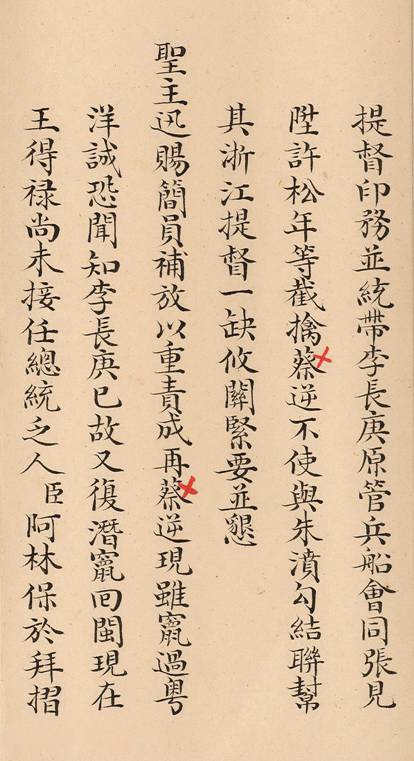 提督印務並統帶李長庚原管兵船會同張見
陞許松年等截擒蔡逆不使與朱濆勾結聯幫
其浙江提督一缺攸關緊要並懇
聖主迅賜簡員補放以重責成再蔡逆現雖竄過粵
洋誠恐聞知李長庚已故又復潛竄回閩現在
王得禄尚未接任總統乏人臣阿林保於拜摺